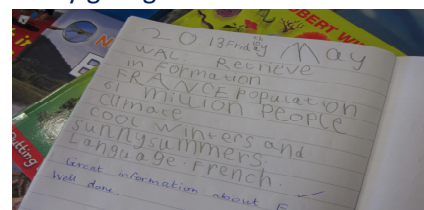 20 13th Friday May
WAL Retrieve
information
FRANCE Population
61 million People
Climate
cool winters and
sunny summers.
Language. French.
Great information about F
Well done.
utting